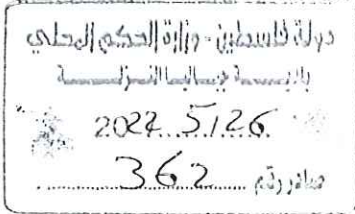 دولة فلسطين - وزارة الحكم المحلي
بلديـــــة
2022 5/26
صادر رقم 362